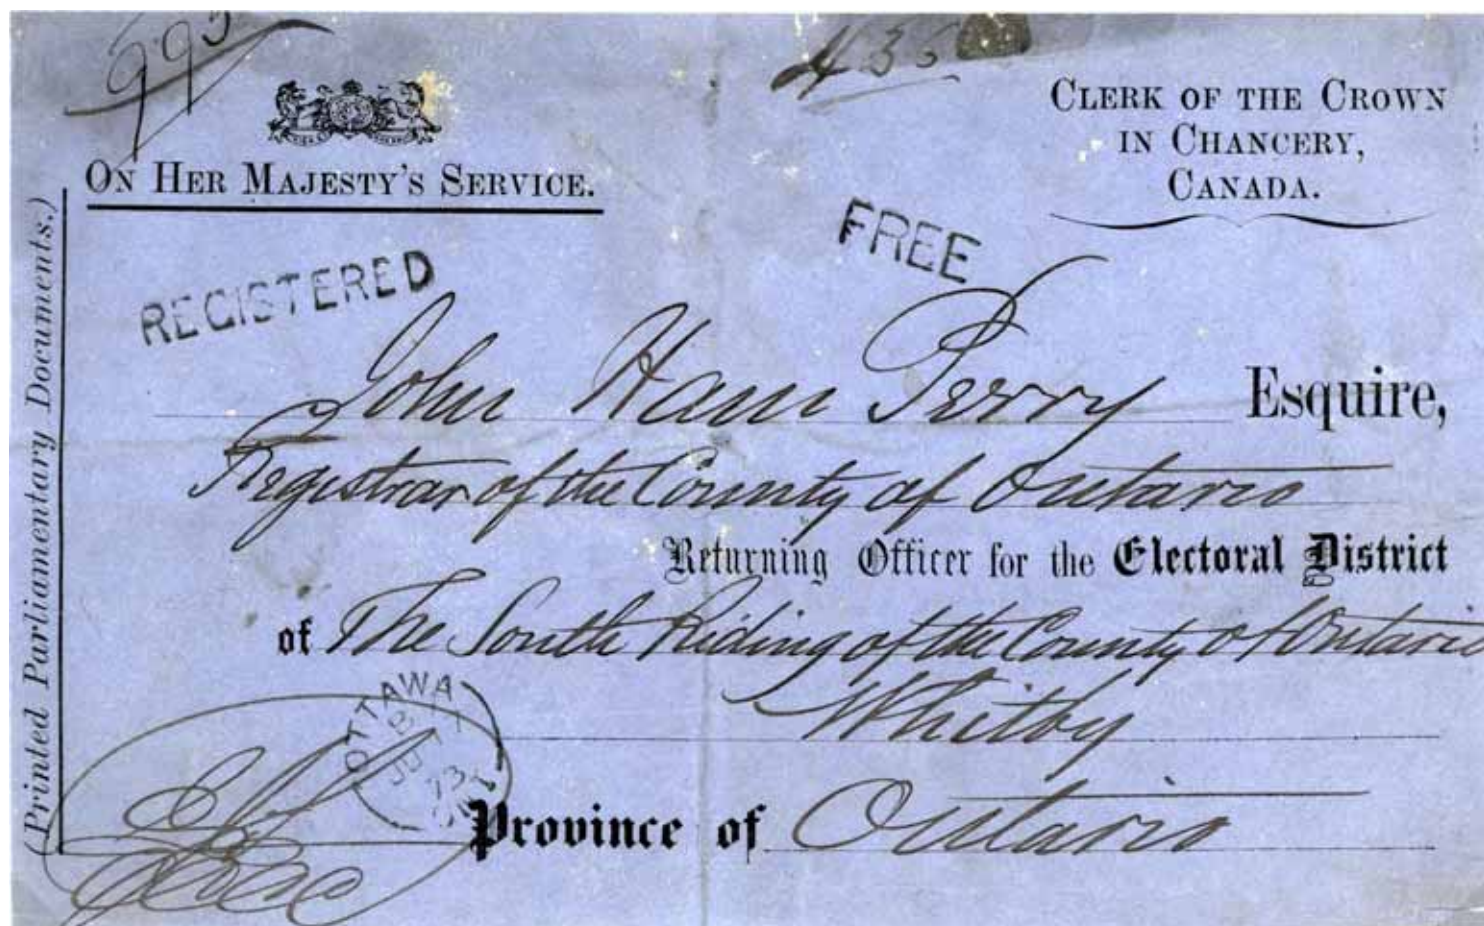 995
435
ON HER MAJESTY'S SERVICE.
CLERK OF THE CROWN
IN CHANCERY,
CANADA.
(Printed Parliamentary Documents.)
REGISTERED
FREE
John Ham Perry Esquire,
Registrar of the County of Ontario
Returning Officer for the Electoral District
of The South Riding of the County of Ontario
Whitby
Province of Ontario
OTTAWA
73
ONT